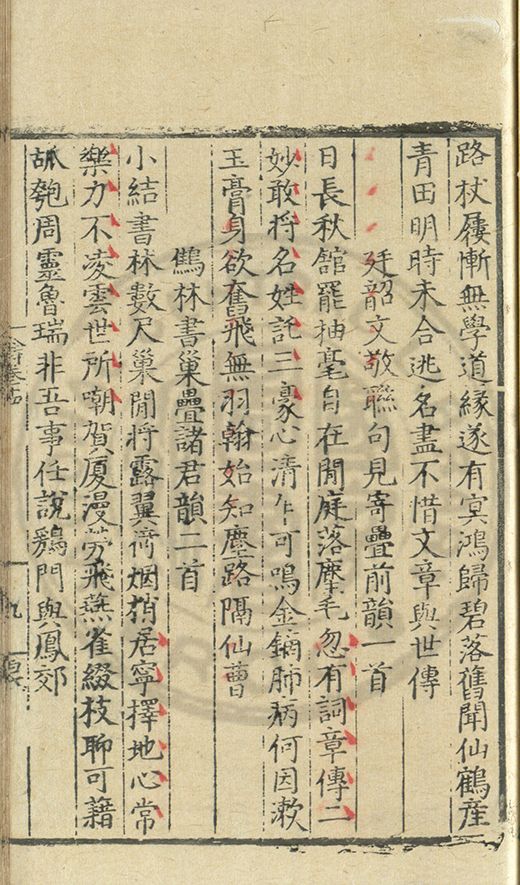 路杖屨慚無學道緣遂有冥鴻歸碧落舊聞仙鶴産
青田明時未合逃名盡不惜文章與世傳
廷韶文敬聯句見寄疊前韻一首
日長秋館罷抽毫自在閒庭落麈毛忽有詞章傳二
妙敢將名姓託三豪心清乍可鳴金鏑肺病何因漱
玉膏身欲奮飛無羽翰始知塵路隔仙曹
鷦林書巢疊諸君韻二首
小結書林數尺巢閒將露翼齊烟捎居寧擇地心常
樂力不凌雲世所嘲賀厦漫勞飛燕雀綴枝聊可藉
瓠匏周靈魯瑞非吾事任說鷄門與鳳郊
九